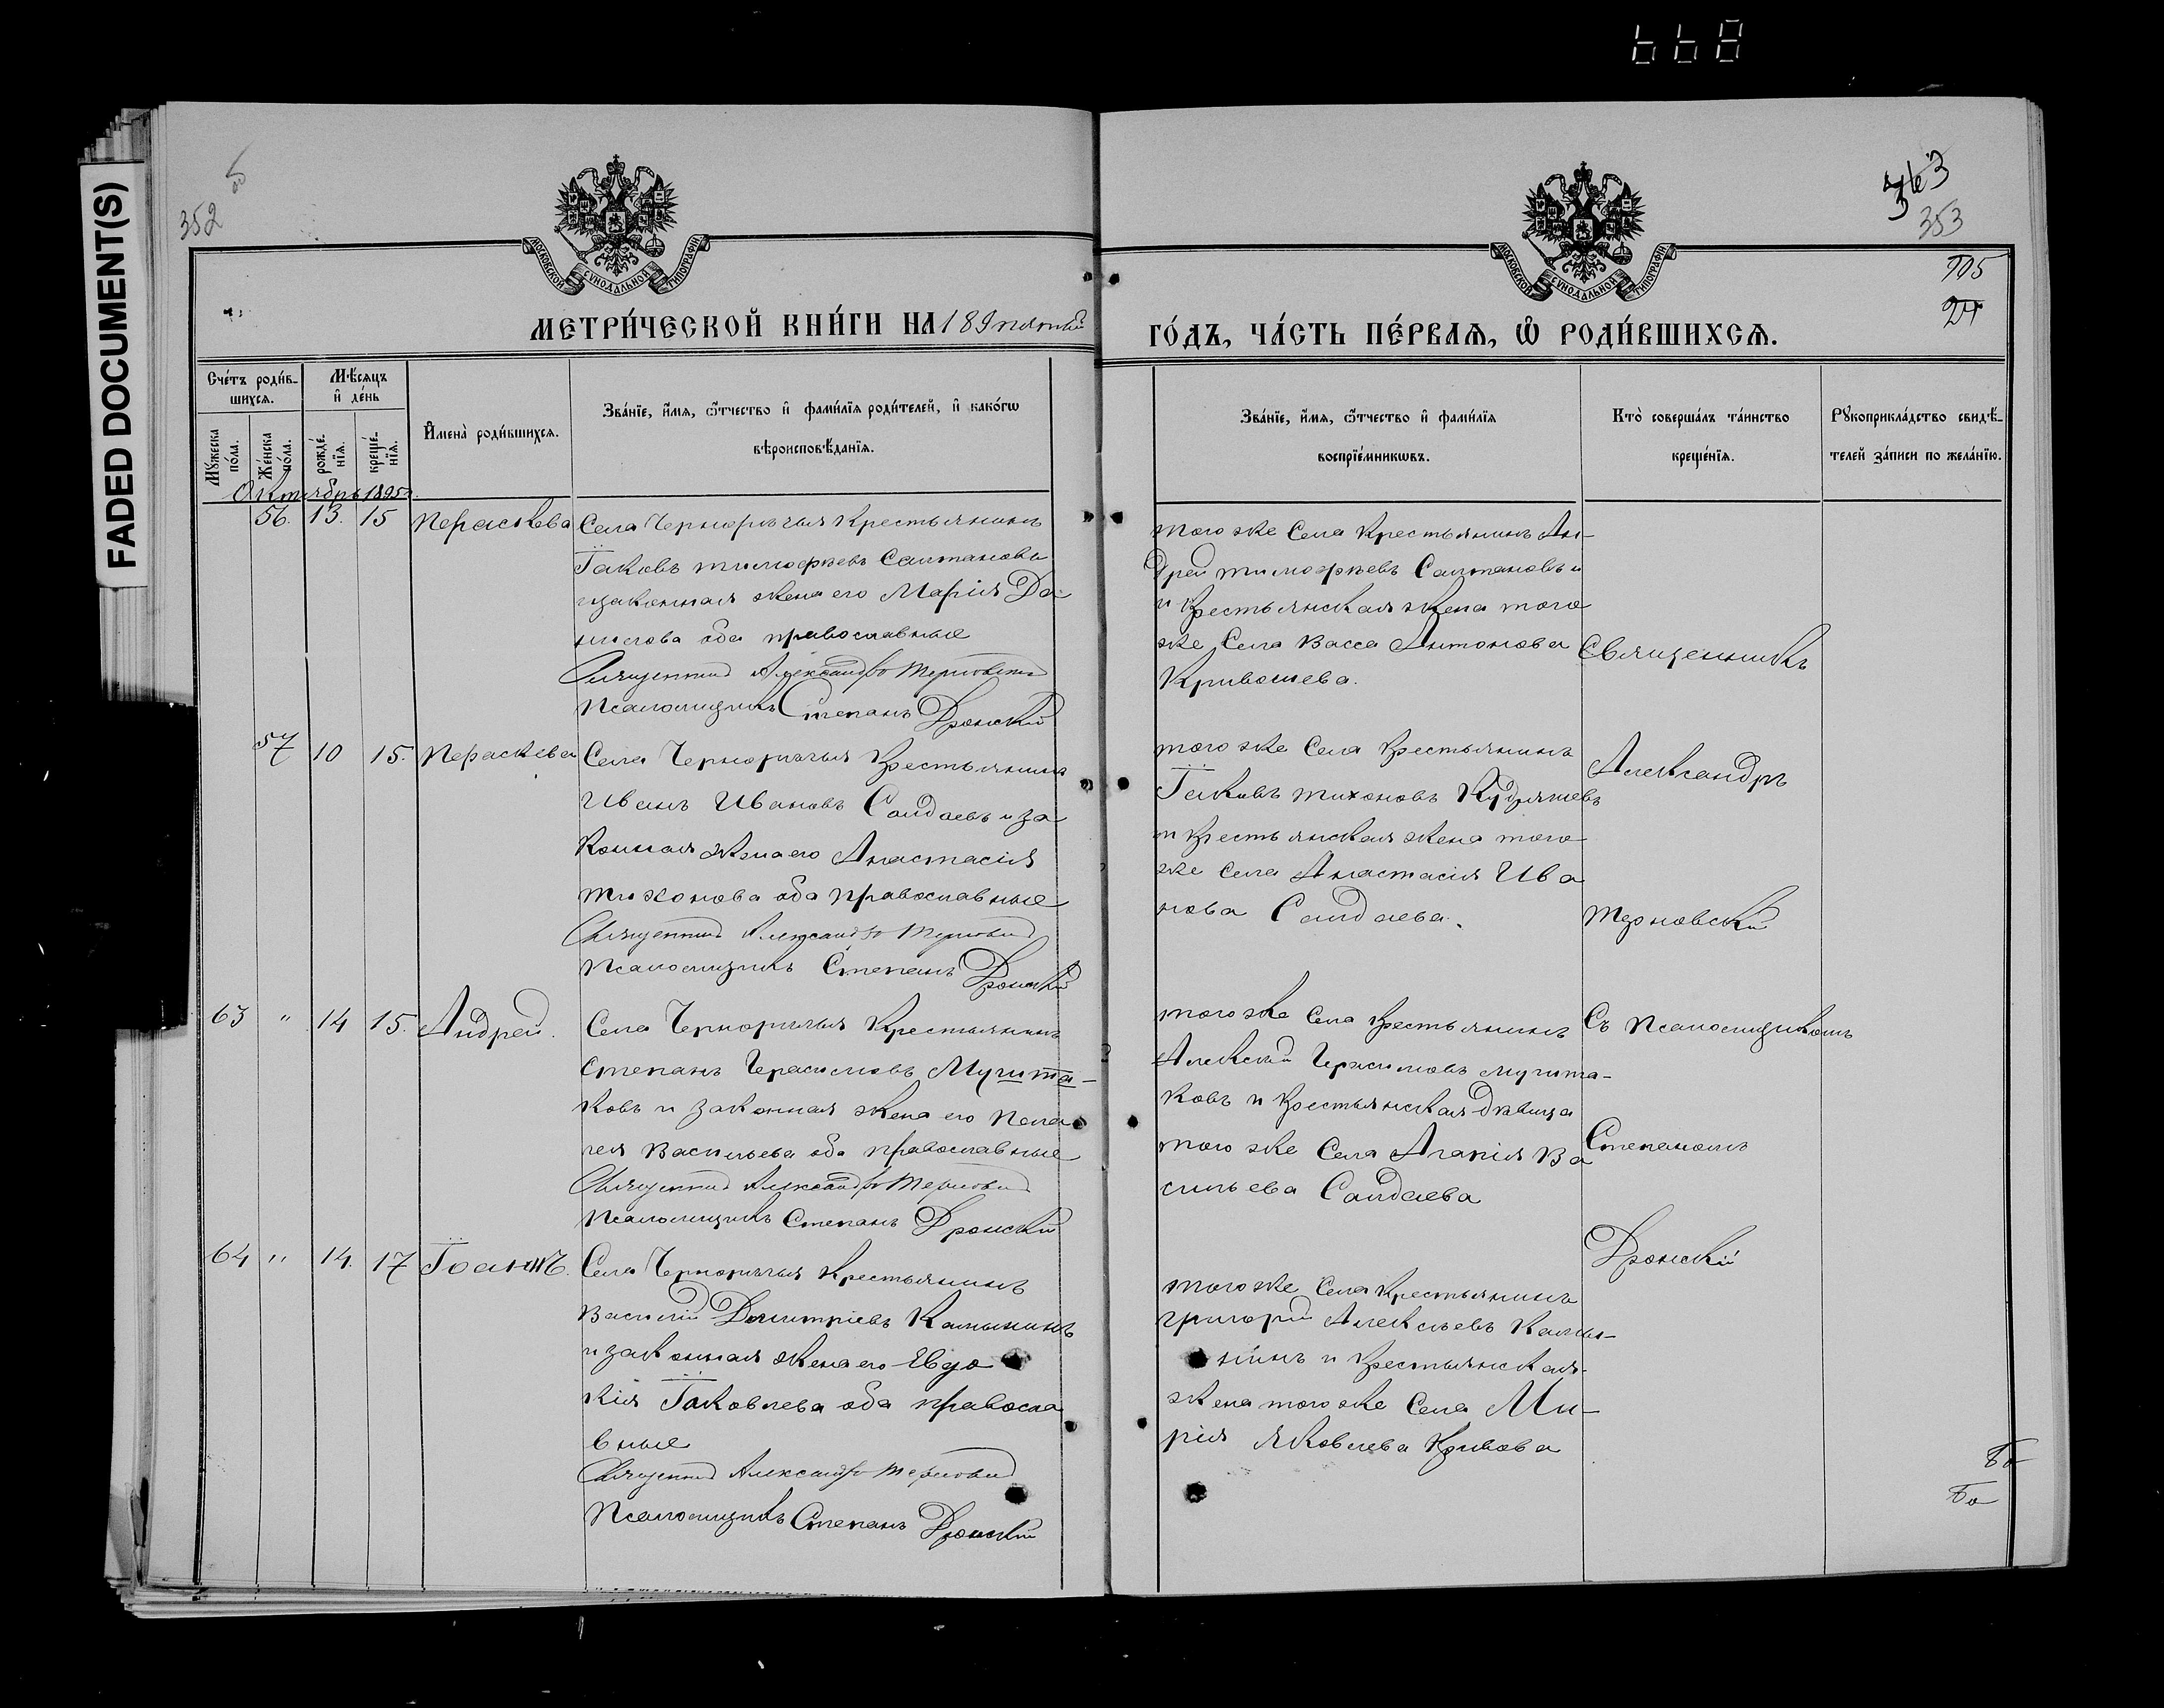 668
FADED DOCUMENT(S)
352
об
353
105
МОСКОВСКОЙ СУНОДАЛЬНОЙ ТИПОГРАФІИ
МОСКОВСКОЙ СУНОДАЛЬНОЙ ТИПОГРАФІИ
МЕТРИ́ЧЕСКОЙ КНИ́ГИ НА 189пятый
ГО́ДЪ, ЧА́СТЬ ПЕ́РВАЯ, Ѡ҆ РОДИ́ВШИХСЯ.
Сче́тъ роди́в-
шихся.
Мѣ́сяцъ
и҆ де́нь
Му́жеска
по́ла.
Же́нска
по́ла.
рожде́-
нїя.
креще́-
нїя.
И҆мена̀ роди́вшихся.
Зва́нїе, и҆́мя, ѻ҆́тчество и҆ фами́лїя роди́телей, и҆ како́гѡ
вѣроисповѣ́данїя.
Зва́нїе, и҆́мя, ѻ҆́тчество и҆ фами́лїя
воспрїе́мникѡвъ.
Кто̀ соверша́лъ та́инство
креще́нїя.
Рꙋкоприкла́дство свидѣ́-
телей за́писи по жела́нїю.
Октябрь 1895 г.
56. 13. 15 Пераскева Села Чернорѣчья Крестьянинъ
Іаковъ тимофѣевъ Салтановъ
и законная жена его Марія Да-
нилова оба православные
Священникъ Александръ Терновскій
Псаломщикъ Степанъ Дронский
того же Села Крестьянинъ Ан-
дрей тимофѣевъ Салтановъ и
и Крестьянская жена того
же Села Васса Антонова
Кривошева.
Священникъ
57 10 15. Пераскева Села Чернорѣчья Крестьянинъ
Иванъ Ивановъ Саидаевъ и за
конная жена его Анастасія
тихонова оба православные
Священникъ Александръ Терновскій
Псаломщикъ Степанъ Дронский
того же Села Крестьянинъ
Іаковъ тихоновъ Кудряшевъ
и Крестьянская жена того-
же Села Анастасія Ива
нова Саидаева.
Александръ
Терновский
63 " 14 15. Андрей. Села Чернорѣчья Крестьянинъ
Степанъ Герасимовъ Мучита-
ковъ и законная жена его Пела
гея Васильева оба православные
Священникъ Александръ Терновскій
Псаломщикъ Степанъ Дронский
того же Села Крестьянинъ
Алексѣй Герасимовъ Мучита-
ковъ и Крестьянская дѣвица
того же Села Агапія Ва
сильева Саидаева
Съ Псаломщикомъ
Степаномъ
Дронский
64 " 14. 17 Іоаннъ. Села Чернорѣчья Крестьянинъ
Василій Димитріевъ Калынинъ
и законная жена его Евдо
кія Іаковлева оба правосла
вные
Священникъ Александръ Терновскій
Псаломщикъ Степанъ Дронский
того же Села Крестьянинъ
григорій Алексѣевъ Калы-
нинъ и Крестьянская-
жена того же Села Ма-
рія Яковлева Кривова